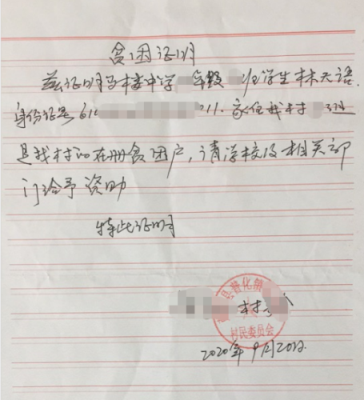 贫困证明
兹证明马楼中学 年级 班学生林天语,
身份证号61 211.家住我村 3组
是我村的在册贫困户,请学校及相关部
门给予资助
特此证明
县普化 村
村民委员会
2020年9月20日